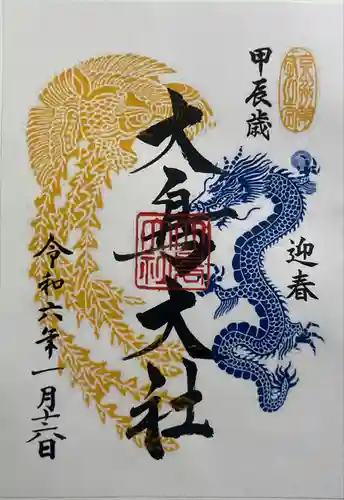 甲辰歳
迎春
大鳥大社
令和六年一月十六日